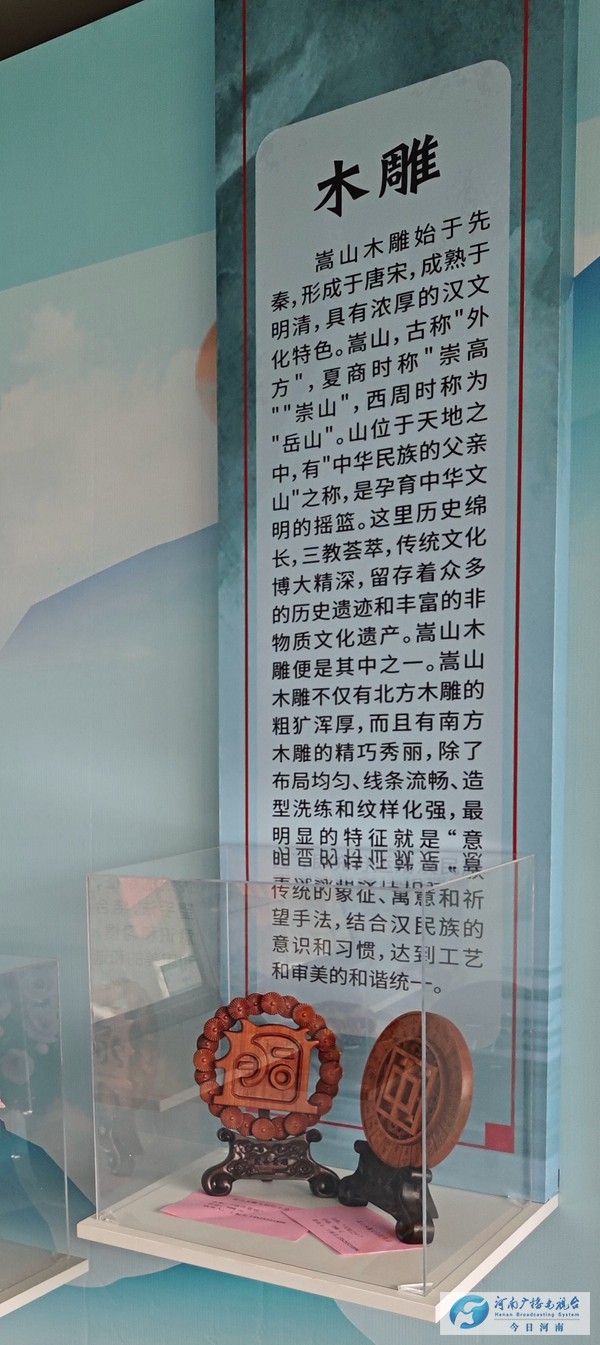 木雕
嵩山木雕始于先
秦,形成于唐宋,成熟于
明清,具有浓厚的汉文
化特色。嵩山,古称"外
方",夏商时称"崇高
""崇山",西周时称为
"岳山"。山位于天地之
中,有"中华民族的父亲
山"之称,是孕育中华文
明的摇篮。这里历史绵
长,三教荟萃,传统文化
博大精深,留存着众多
的历史遗迹和丰富的非
物质文化遗产。嵩山木
雕便是其中之一。嵩山
木雕不仅有北方木雕的
粗犷浑厚,而且有南方
木雕的精巧秀丽,除了
布局均匀、线条流畅、造
型洗练和纹样化强,最
明显的特征就是“意
传统的象征、寓意和祈
望手法,结合汉民族的
意识和习惯,达到工艺
和审美的和谐统一。
河南广播电视台
Henan Broadcasting System
今日河南